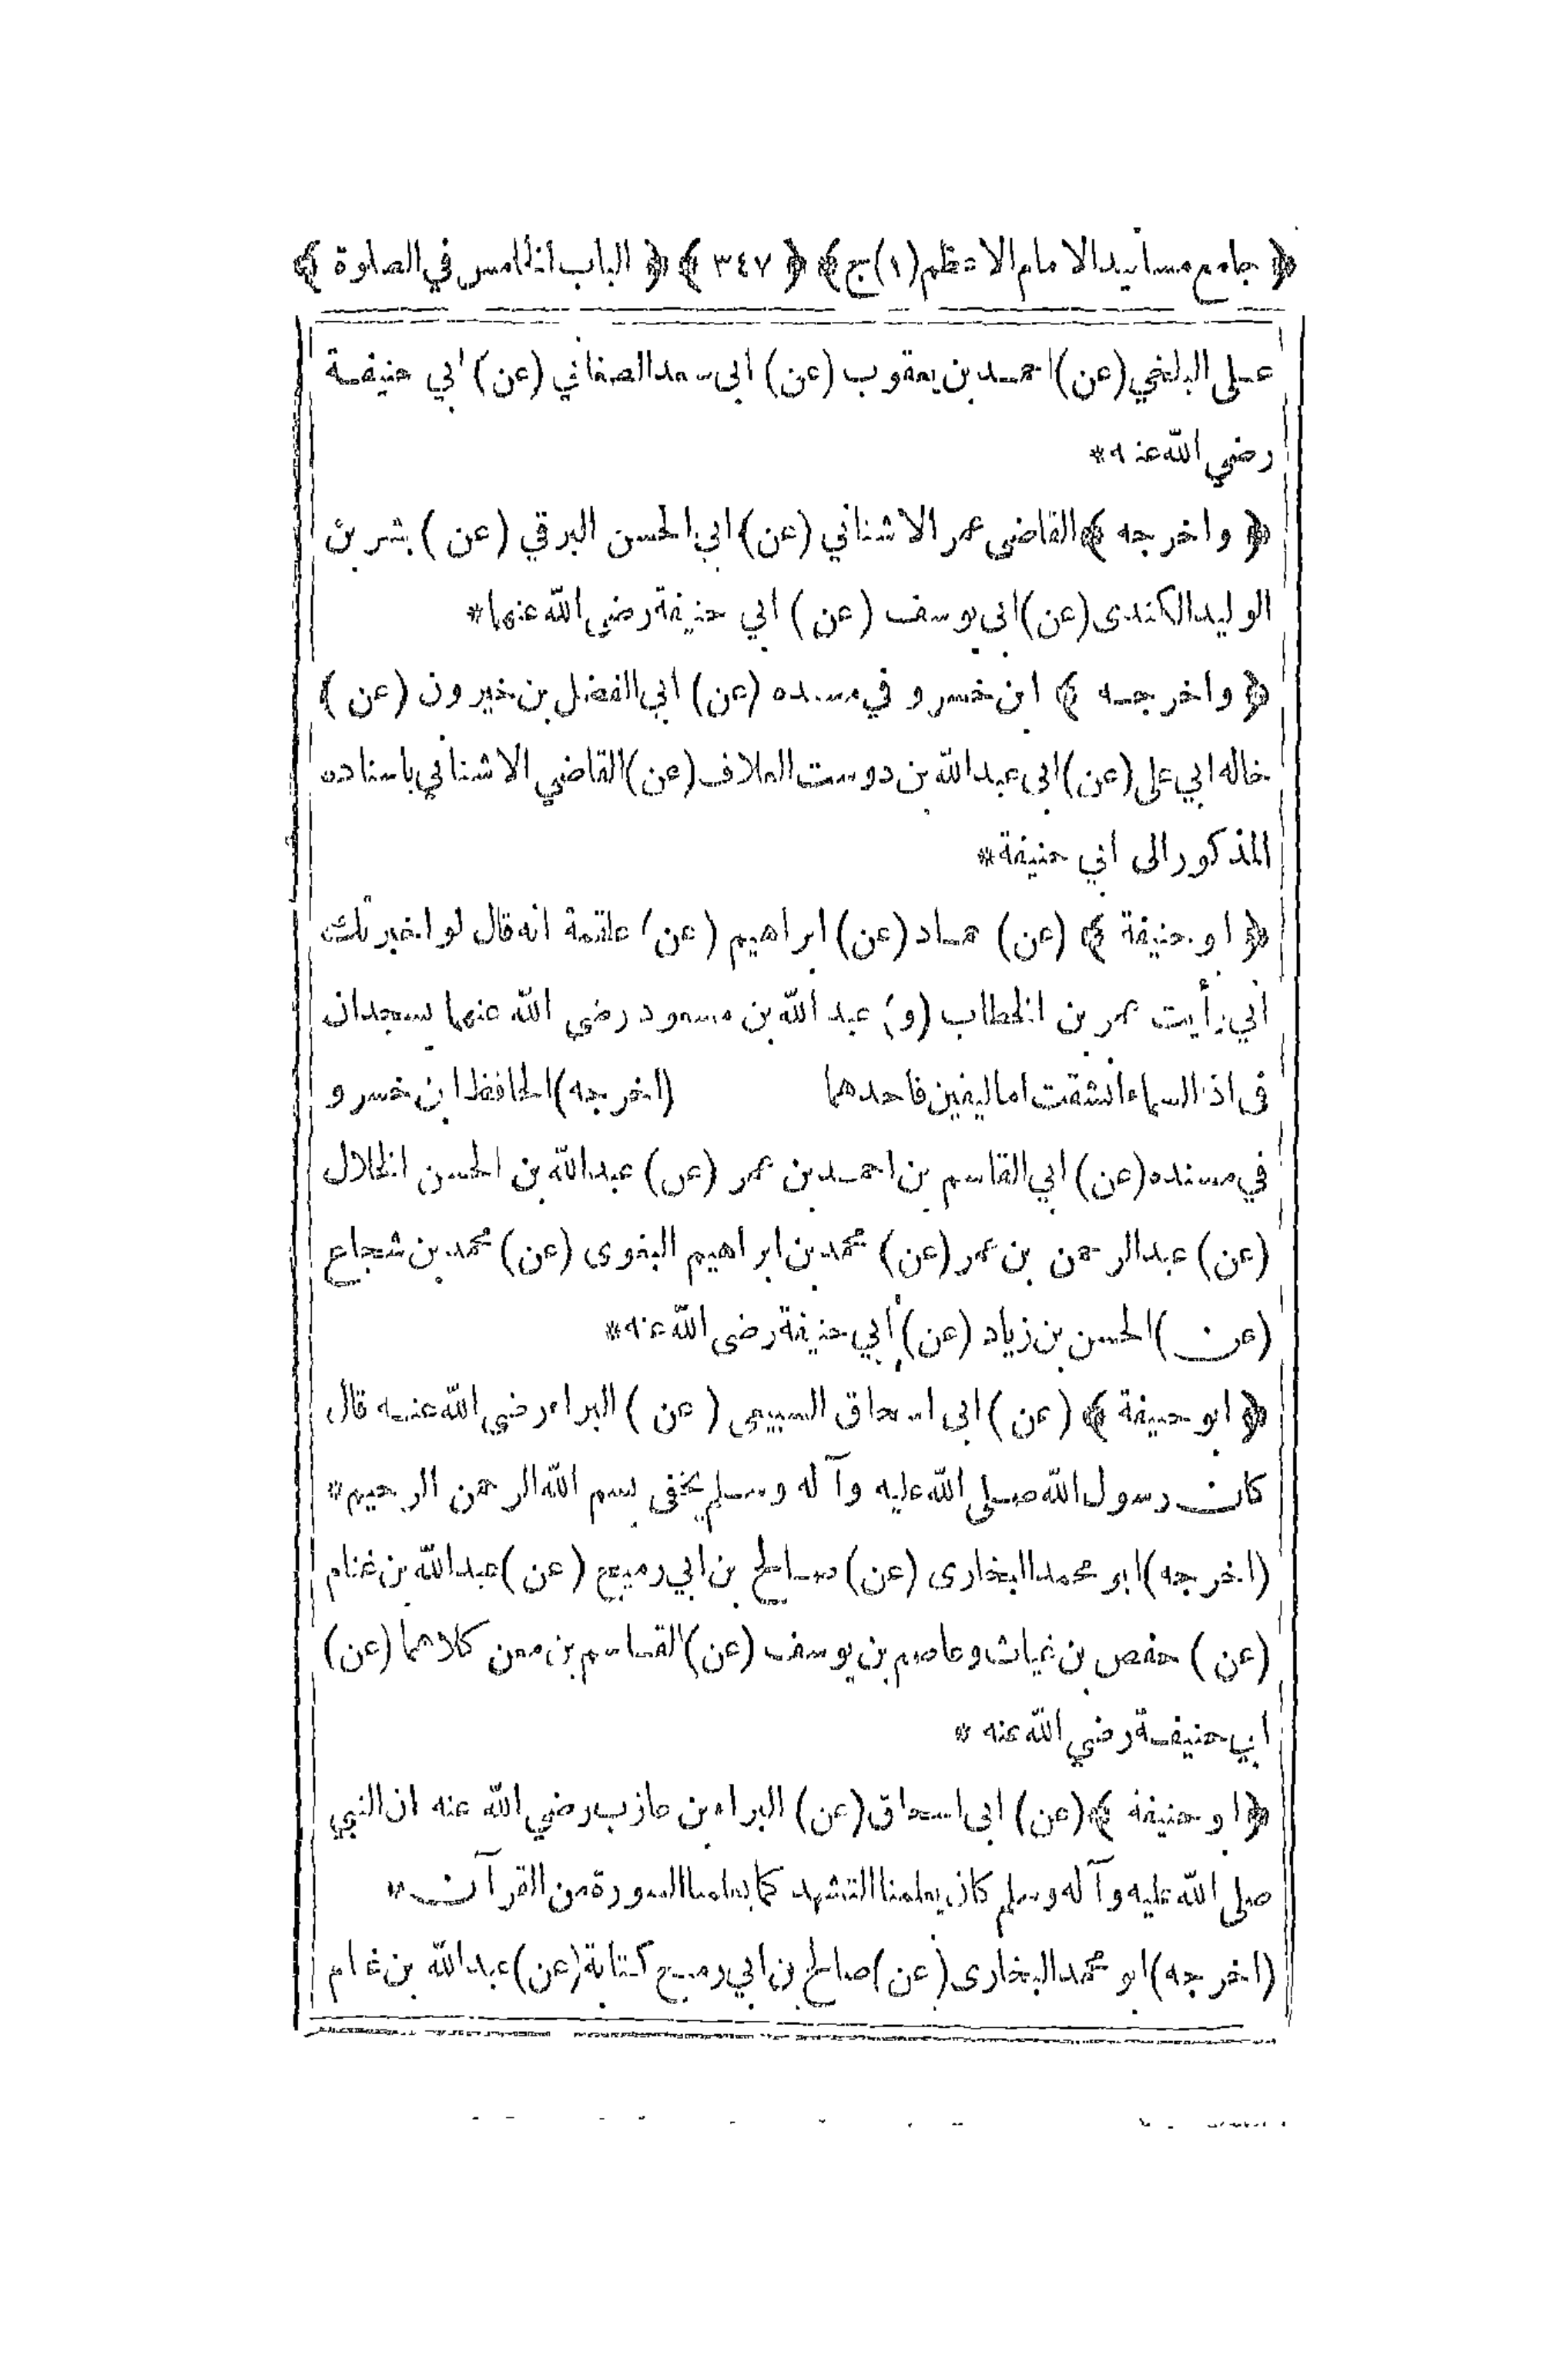 ﴿ جامع مسانيد الامام الاعظم (١) ج ﴾ ﴿ ٣٤٧ ﴾ ﴿ الباب الخامس في الصلوة ﴾
على البلخي (عن) احمد بن يعقوب (عن) ابى سعد الصغاني (عن) ابي حنيفة
رضي الله عنه *
﴿ واخرجه ﴾ القاضى عمر الاشناني (عن) ابي الحسن البرقي (عن) بشر بن
الوليد الكندى (عن) ابى يوسف (عن) ابي حنيفة رضي الله عنهما *
﴿ واخرجه ﴾ ابن خسرو في مسنده (عن) ابي الفضل بن خيرون (عن)
خاله ابي على (عن) ابى عبد الله بن دوست العلاف (عن) القاضي الاشناني باسناده
المذكور الى ابي حنيفة *
﴿ ابو حنيفة ﴾ (عن) حماد (عن) ابراهيم (عن) علقمة انه قال لو اخبرتك
اني رأيت عمر بن الخطاب (و) عبد الله بن مسعود رضى الله عنهما يسجدان
فى اذا السماء انشقت اما ليفين فاحدهما (اخرجه) الحافظ ابن خسرو
في مسنده (عن) ابي القاسم بن احمد بن عمر (عن) عبد الله بن الحسن الخلال
(عن) عبد الرحمن بن عمر (عن) محمد بن ابراهيم البغوى (عن) محمد بن شجاع
(عن) الحسن بن زياد (عن) أبي حنيفة رضى الله عنه *
﴿ ابو حنيفة ﴾ (عن) ابى اسحاق السبيعى (عن) البراء رضي الله عنه قال
كان رسول الله صلى الله عليه وآله وسلم يخفى بسم الله الرحمن الرحيم *
(اخرجه) ابو محمد البخارى (عن) صالح بن ابي رميح (عن) عبد الله بن غنام
(عن) حفص بن غياث وعاصم بن يوسف (عن) القاسم بن معن كلاهما (عن)
ابي حنيفة رضي الله عنه *
﴿ ابو حنيفة ﴾ (عن) ابى اسحاق (عن) البراء بن عازب رضي الله عنه ان النبي
صلى الله عليه وآله وسلم كان يعلمنا التشهد كما يعلمنا السورة من القرآن *
(اخرجه) ابو محمد البخارى (عن) صالح بن ابي رميح كتابة (عن) عبد الله بن غنام